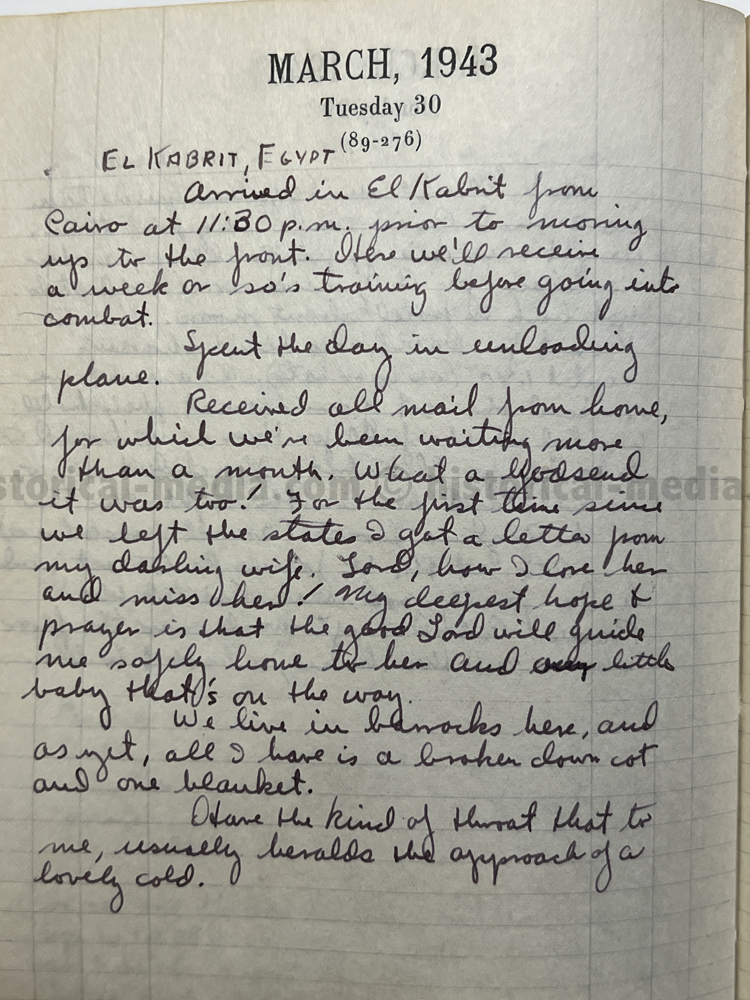 MARCH, 1943
Tuesday 30
(89-276)
EL KABRIT, EGYPT
Arrived in El Kabrit from
Cairo at 11:30 p.m. prior to moving
up to the front. Here we'll receive
a week or so's training before going into
combat.
Spent the day in unloading
plane.
Received all mail from home,
for which we've been waiting more
than a month. What a Godsend
it was too! For the first time since
we left the states I got a letter from
my darling wife. Lord, how I love her
and miss her! My deepest hope &
prayer is that the good Lord will guide
me safely home to her and our little
baby that's on the way.
We live in barracks here, and
as yet, all I have is a broken down cot
and one blanket.
Have the kind of throat that to
me, usually heralds the approach of a
lovely cold.